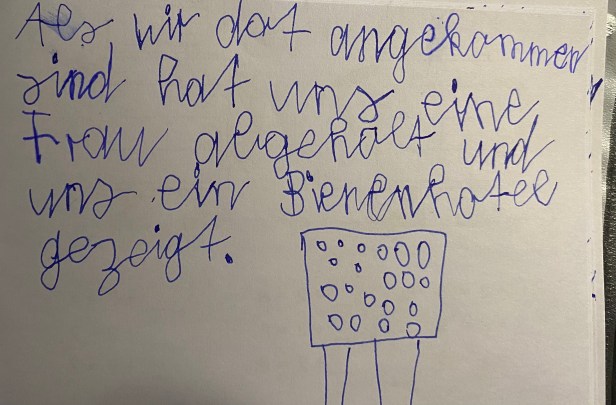 Als wir dot angekommen
sind hat uns eine
Frau abgehölt und
uns ein Bienenhotel
gezeigt.